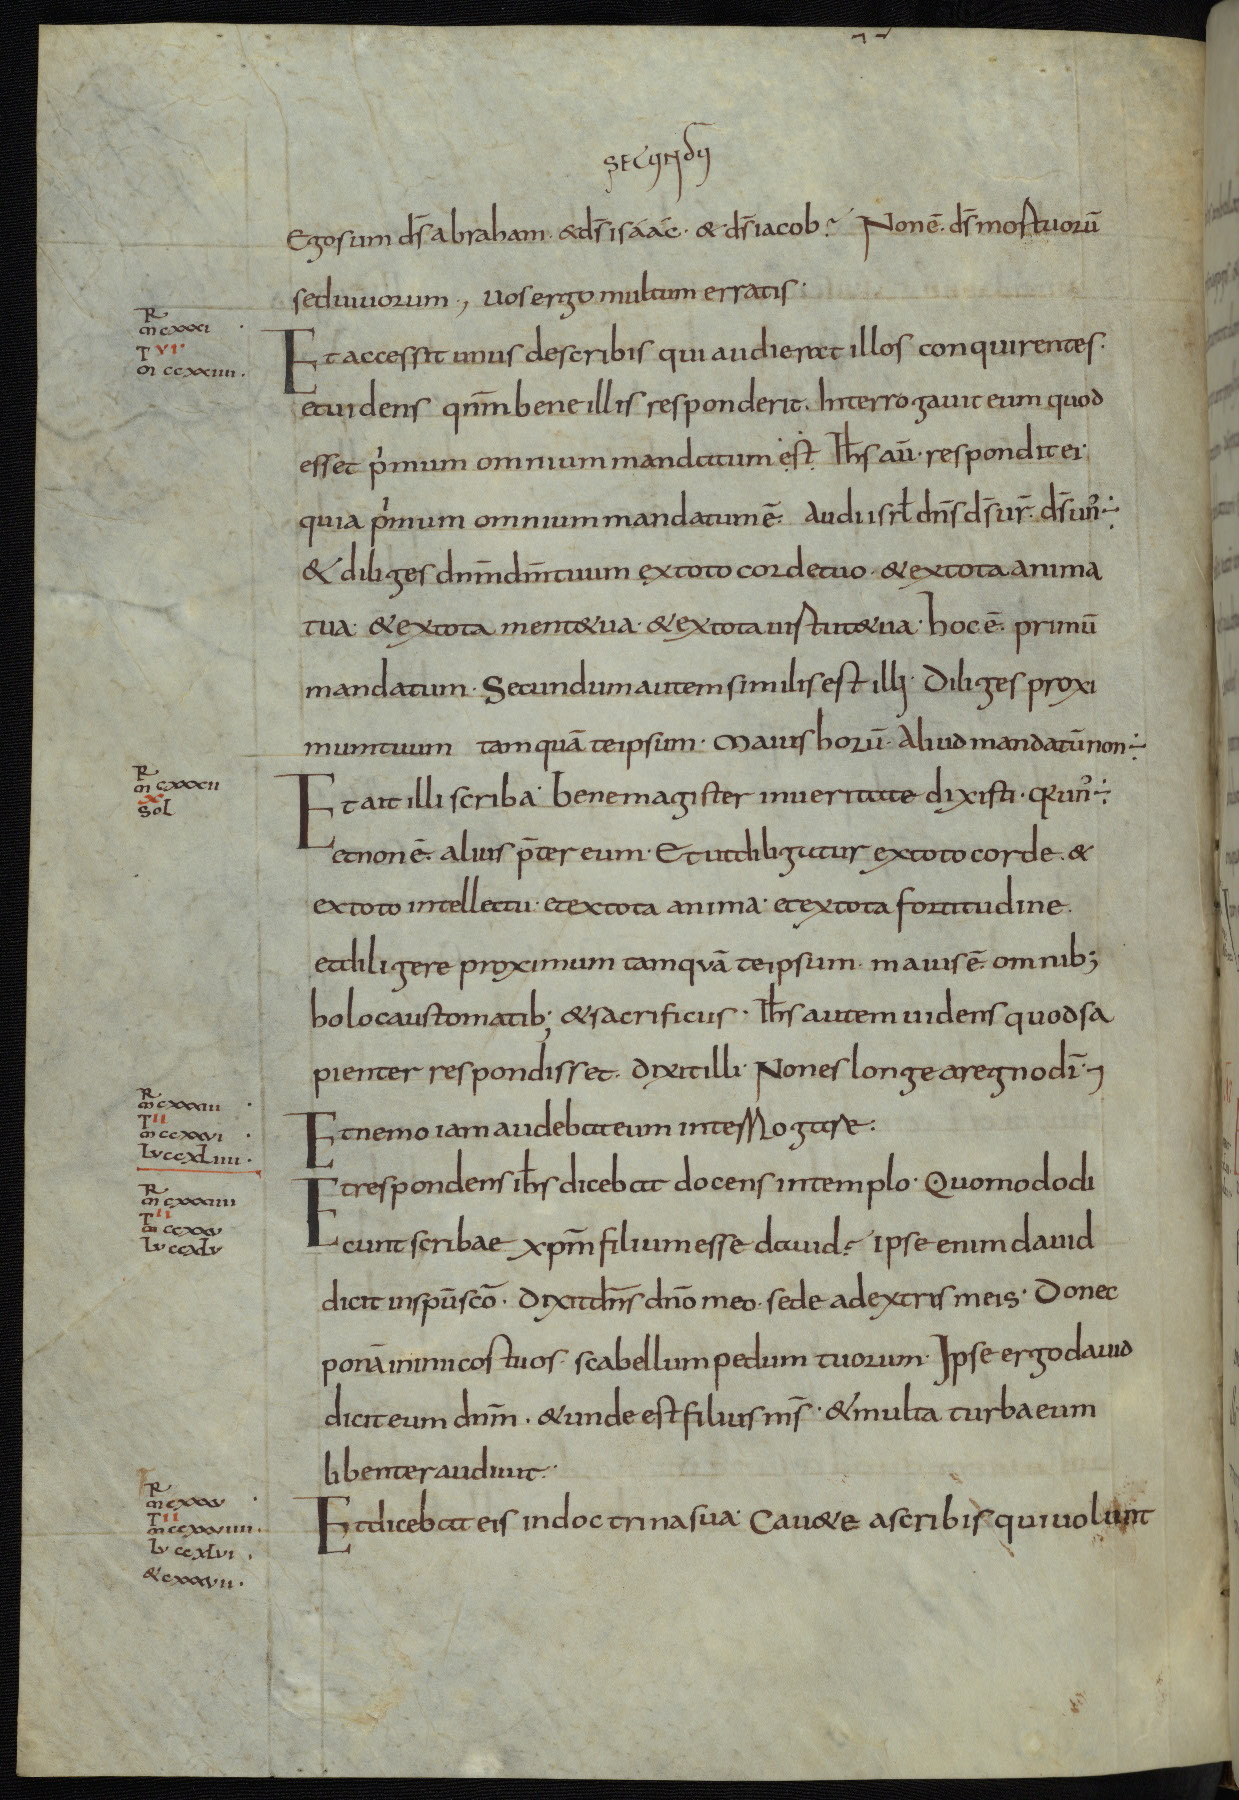 SECUNDŪ
Ego sum d̄s abraham · & d̄s isáác · & d̄s iacob ؟ Non ē · d̄s mortuorū
sed uiuorum ·, uos ergo multum erratis ·
R
m̄ cxxxi ·
T VI
m̄ ccxxiiii ·
Et accessit unus de scribis qui audierat illos conquirentes ·
et uidens qn̄m bene illis responderit · Interrogauit eum quod
esset p̍mum omnium mandatum est · Ih̄s aū · respondit ei ·
quia p̍mum omnium mandatum ē · Audi isr̄l dn̄s d̄s ur̄ · d̄s un᷒ ÷
& diliges dn̄m dm̄ tuum ex toto corde tuo · & ex tota anima
tua · & ex tota ment& ua · & ex tota uirtut& ua · hoc ē · primū
mandatum · Secundum autem similis est illi · Diliges proxi
mum tuum tamquā te ipsum · Maius horū · Aliud mandatū non ÷
R
m̄ cxxxii
X
Sol
Et ait illi scriba · bene magister in ueritate dixisti · Q̄R un᷒ ÷
et non ē · alius p̄ter eum · Et ut diligatur ex toto corde · &
ex toto intellectu · et ex tota anima · et ex tota fortitudine ·
et diligere proximum tamquā te ipsum · maius ē · omnib;
holocaustomatib; & sacrificiis · Ih̄s autem uidens quod sa
pienter respondisset · dixit illi · Non es longe a regno dī ·
R
m̄ cxxxiii ·
T II
m̄ ccxxvi ·
Lu ccxLiiii ·
Et nemo iam audebat eum interrogare ·
R
m̄ cxxxiiii
T II
m̄ ccxxv
Lu ccxLv
Et respondens ih̄s dicebat docens in templo · Quomodo di
cunt scribae xp̄m filium esse dauid ؟ ipse enim dauid
dicit in sp̄u sc̄o · Dixit dn̄s dn̄o meo · sede a dextris meis · Donec
ponā inimicos tuos · scabellum pedum tuorum · Ipse ergo dauid
dicit eum dn̄m · & unde est filius eīs · & multa turba eum
libenter audiuit ·
R
m̄ cxxxv ·
T II
m̄ ccxxviiii ·
Lu ccxLvi ·
& cxxxvii ·
Et dicebat eis in doctrina sua · Cau&e a scribis qui uolunt